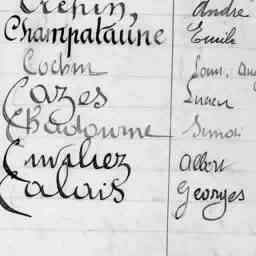 Crépin, André
Champalaune Emile
Cochin Louis, Aug
Cazes Lucien
Chadourne Simon
Cuvaliez Albert
Calais Georges